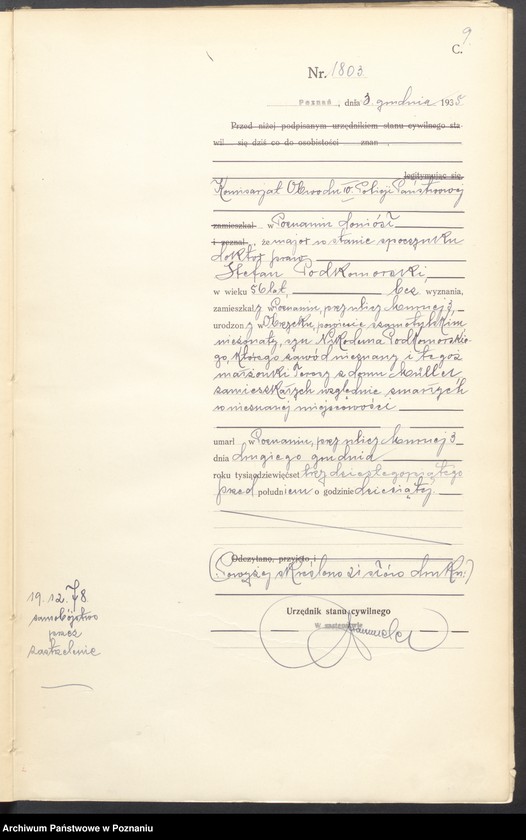 9.
C.
Nr. 1803
Poznań, dnia 3 grudnia 1935
Przed niżej podpisanym urzędnikiem stanu cywilnego sta
wił się dziś co do osobistości znan
legitymując się
Komisarjat Obwodu IV. Policji Państwowej
zamieszkał w Poznaniu doniósł
i zeznał, że major w stanie spoczynku
doktór praw
Stefan Podkomorski,
w wieku 56 lat, bez wyznania,
zamieszkały w Poznaniu, przy ulicy
urodzony w Obrzeku, powiecie szamotulskim
nieżonaty, syn Nikodema Podkomorskie-
go, którego zawód nieznany i tegoż
małżonki Teresy z domu Müller
zamieszkałych względnie zmarłych
w nieznanej miejscowości
umarł w Poznaniu, przy ulicy
dnia drugiego grudnia
roku tysiąc dziewięćset trzydziestego piątego
przed południem o godzinie dziesiątej.
Odczytano, przyjęto i
(Powyżej skreślono 21 słów druku.)
Urzędnik stanu cywilnego
W zastępstwie
19.12.78.
samobójstwo
przez
zastrzelenie
Archiwum Państwowe w Poznaniu